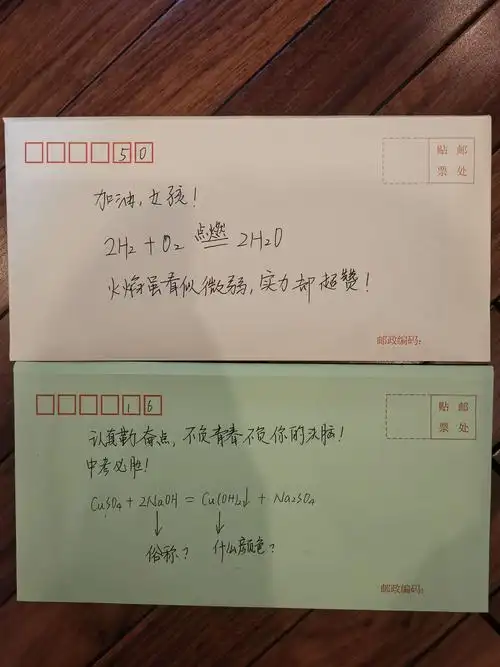 50
贴 邮
票 处
加油,女孩!
2H₂ + O₂ 点燃 2H₂O
火焰虽看似微弱,实力却超赞!
邮政编码:
16
贴 邮
票 处
认真勤奋点,不负青春不负你的头脑!
中考必胜!
CuSO₄ + 2NaOH = Cu(OH)₂↓ + Na₂SO₄
俗称? 什么颜色?
邮政编码: